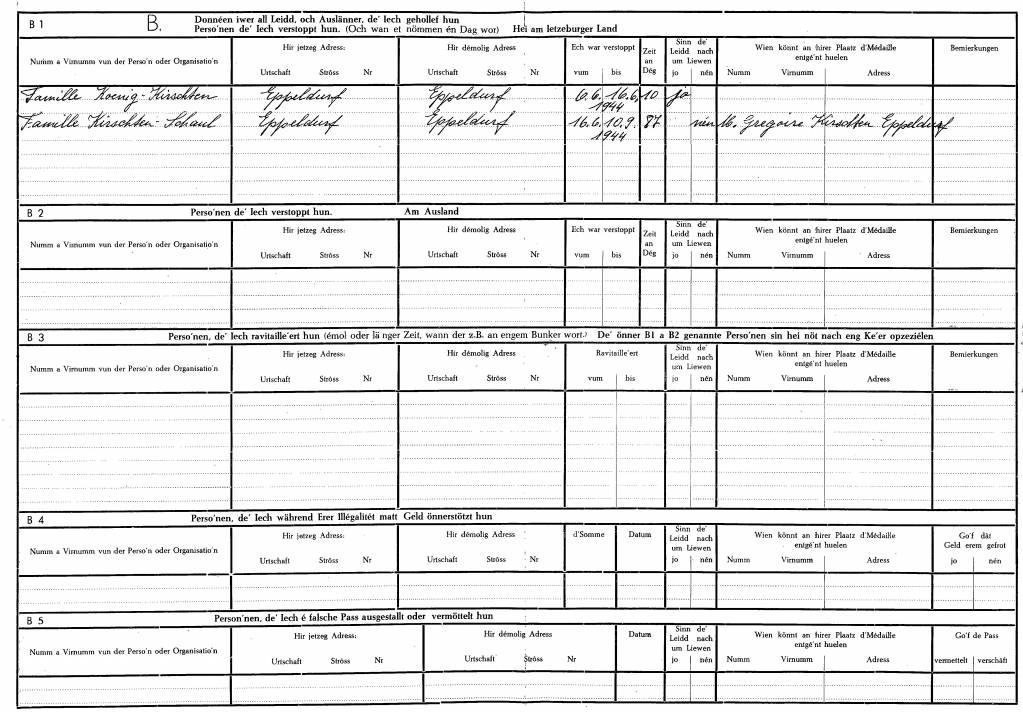 B 1 B. Donnéen iwer all Leidd, och Auslänner, de' Iech gehollef hun
Perso'nen de' Iech verstoppt hun. (Och wan et nömmen én Dag wor) Hei am letzeburger Land
Numm a Virnumm vun der Perso'n oder Organisatio'n
Hir jetzeg Adress:
Urtschaft Ströss Nr
Hir démolig Adress
Urtschaft Ströss Nr
Ech war verstoppt
vum bis
Zeit
an
Dég
Sinn de'
Leidd nach
um Liewen
jo nén
Wien könnt an hirer Plaatz d'Médaille
entgé'nt huelen
Numm Virnumm Adress
Bemierkungen
Famille Koenig-Kirschten Eppeldurf Eppeldurf 6.6. 16.6. 10 jo
1944
Famille Kirschten-Schaul Eppeldurf Eppeldurf 16.6. 10.9. 87 nén M. Gregoire Kirschten Eppeldurf
1944
B 2 Perso'nen de' Iech verstoppt hun. Am Ausland
Numm a Virnumm vun der Perso'n oder Organisatio'n
Hir jetzeg Adress:
Urtschaft Ströss Nr
Hir démolig Adress
Urtschaft Ströss Nr
Ech war verstoppt
vum bis
Zeit
an
Dég
Sinn de'
Leidd nach
um Liewen
jo nén
Wien könnt an hirer Plaatz d'Médaille
entgé'nt huelen
Numm Virnumm Adress
Bemierkungen
B 3 Perso'nen, de' Iech ravitaille'ert hun (émol oder länger Zeit, wann der z.B. an engem Bunker wort.) De' önner B1 a B2 genannte Perso'nen sin hei nöt nach eng Ke'er opzeziélen
Numm a Virnumm vun der Perso'n oder Organisatio'n
Hir jetzeg Adress:
Urtschaft Ströss Nr
Hir démolig Adress
Urtschaft Ströss Nr
Ravitaille'ert
vum bis
Sinn de'
Leidd nach
um Liewen
jo nén
Wien könnt an hirer Plaatz d'Médaille
entgé'nt huelen
Numm Virnumm Adress
Bemierkungen
B 4 Perso'nen, de' Iech während Erer Illégalitét matt Geld önnerstötzt hun
Numm a Virnumm vun der Perso'n oder Organisatio'n
Hir jetzeg Adress:
Urtschaft Ströss Nr
Hir démolig Adress
Urtschaft Ströss Nr
d'Somme
Datum
Sinn de'
Leidd nach
um Liewen
jo nén
Wien könnt an hirer Plaatz d'Médaille
entgé'nt huelen
Numm Virnumm Adress
Go'f dât
Geld erem gefrot
jo nén
B 5 Person'nen, de' Iech é falsche Pass ausgestallt oder vermöttelt hun
Numm a Virnumm vun der Perso'n oder Organisatio'n
Hir jetzeg Adress:
Urtschaft Ströss Nr
Hir démolig Adress
Urtschaft Ströss Nr
Datum
Sinn de'
Leidd nach
um Liewen
jo nén
Wien könnt an hirer Plaatz d'Médaille
entgé'nt huelen
Numm Virnumm Adress
Go'f de Pass
vermettelt verschâft